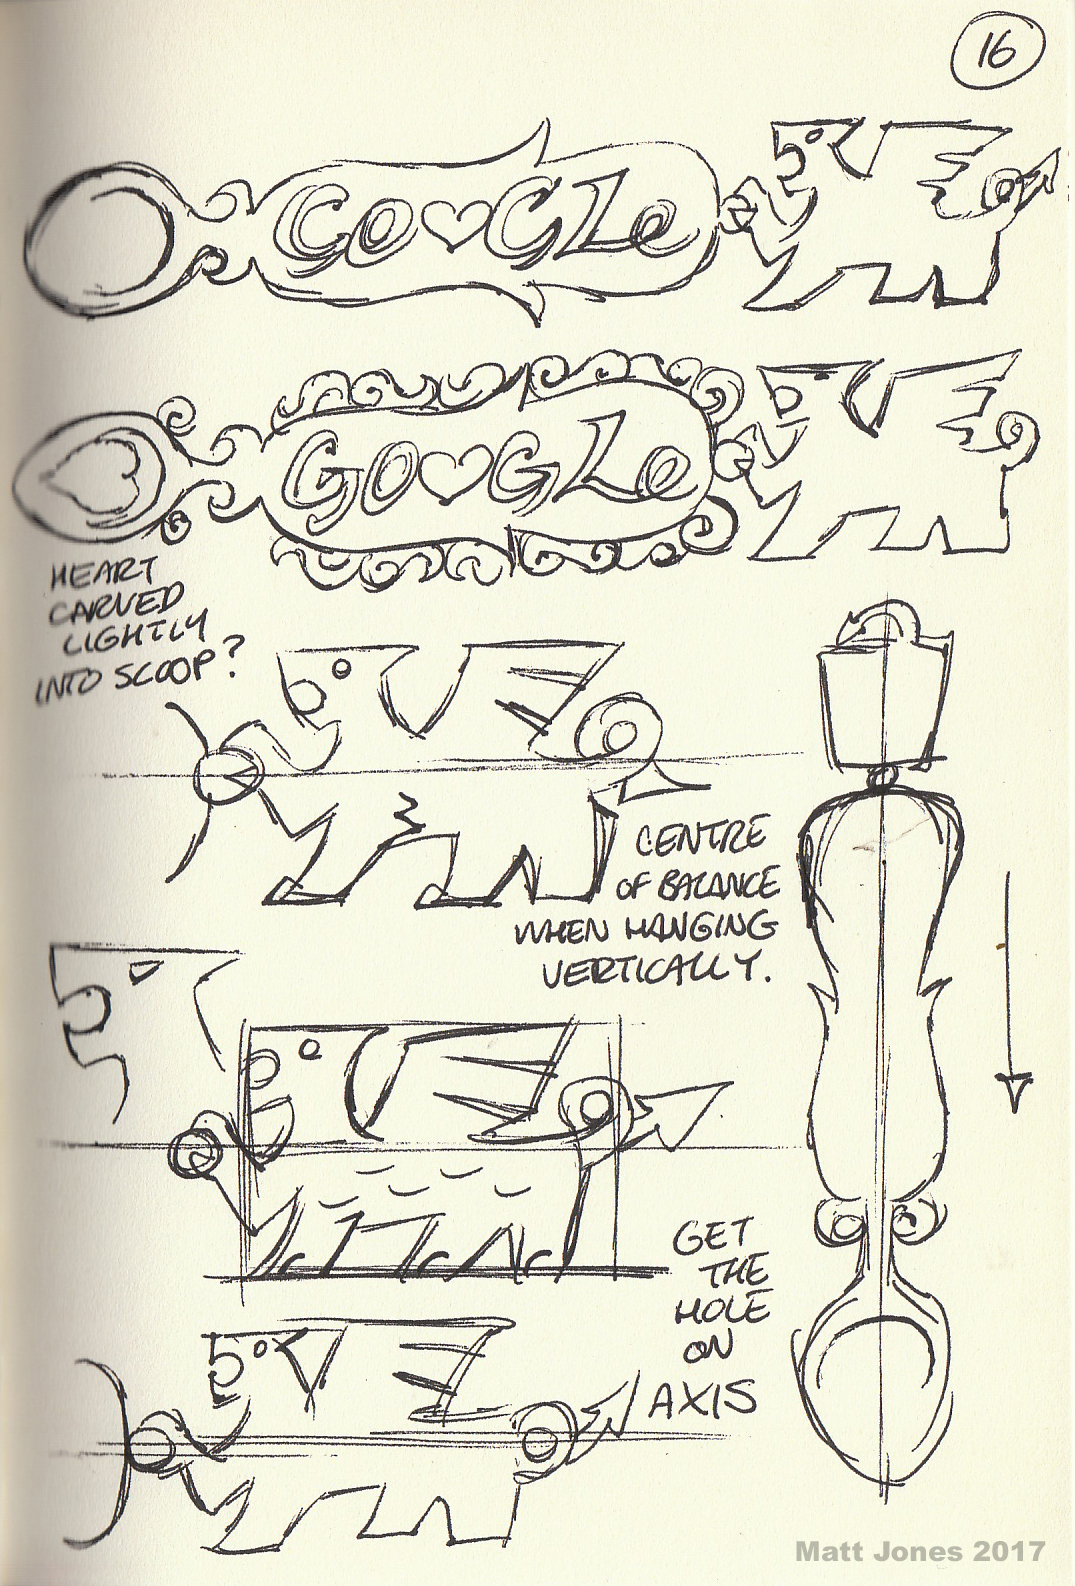 16
GO♥GLe
GO♥GLe
HEART
CARVED
LIGHTLY
INTO SCOOP?
CENTRE
OF BALANCE
WHEN HANGING
VERTICALLY.
GET
THE
HOLE
ON
AXIS
Matt Jones 2017